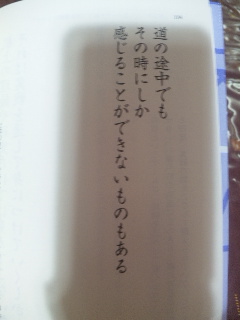 道の途中でも
その時にしか
感じることができないものもある